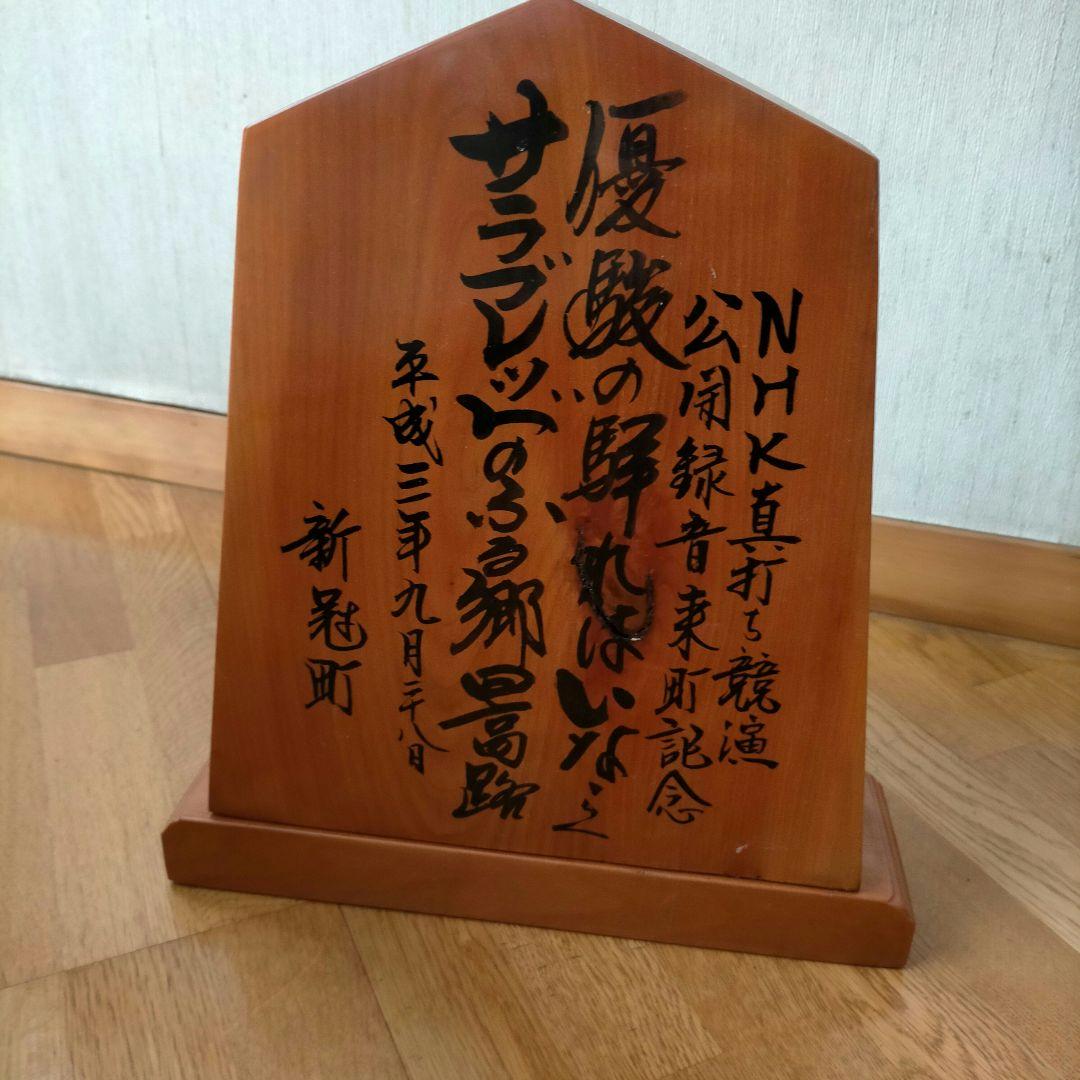 NHK真打ち競演
公開録音来町記念
優駿の群れはいなゝく
サラブレッドのふる郷日高路
平成三年九月二十八日
新冠町